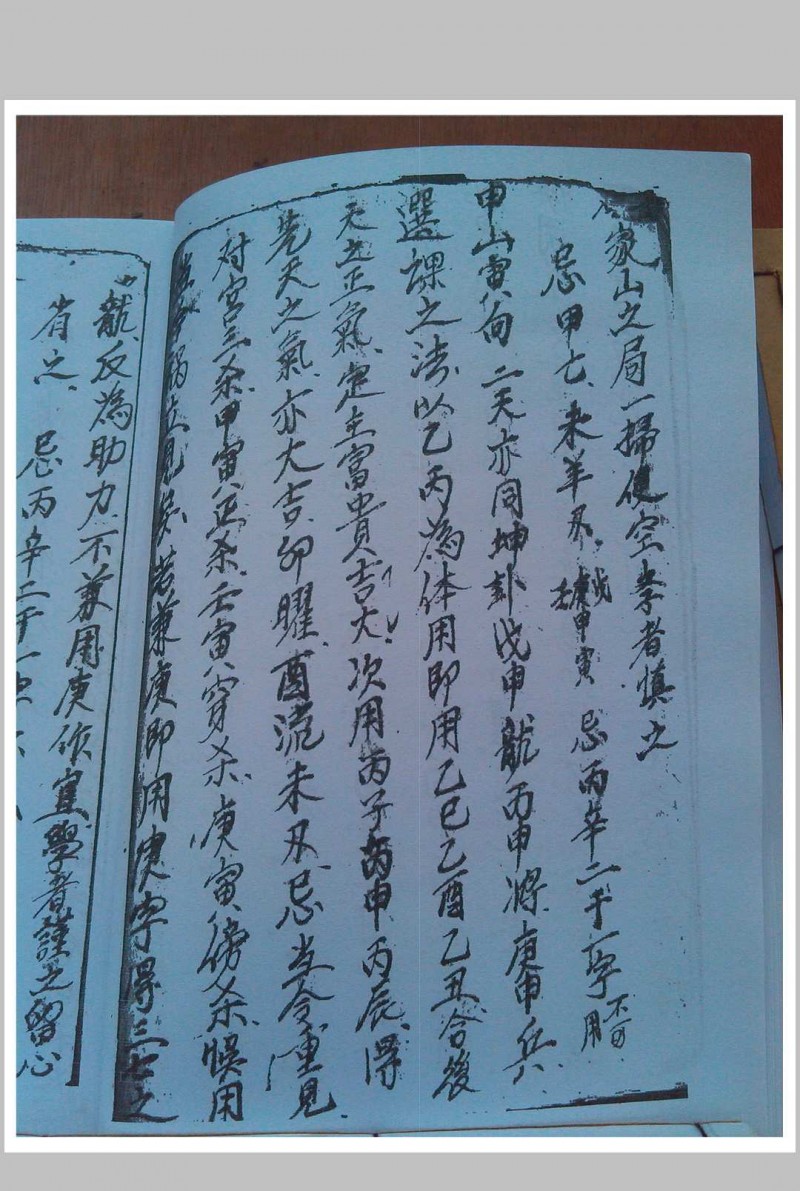 家山之局一掃使空學者慎之
忌甲七、未羊刃、戊庚壬申寅 忌丙辛二干一字不可用
申山寅向 二天亦同坤卦戊申龍丙申將庚申兵
選課之法以乙丙為体用即用乙巳乙酉乙丑合後
天之正氣定主富貴吉大次用丙子丙申丙辰得
先天之氣亦大吉卯曜酉流未刃忌当令重見
对宮三杀甲寅正杀壬寅穿杀庚寅傍杀悞用
禍立見矣若兼庚即用庚字得三七之
龍反為助力不兼用庚作宜學者謹之留心
省之 忌丙辛二干一字